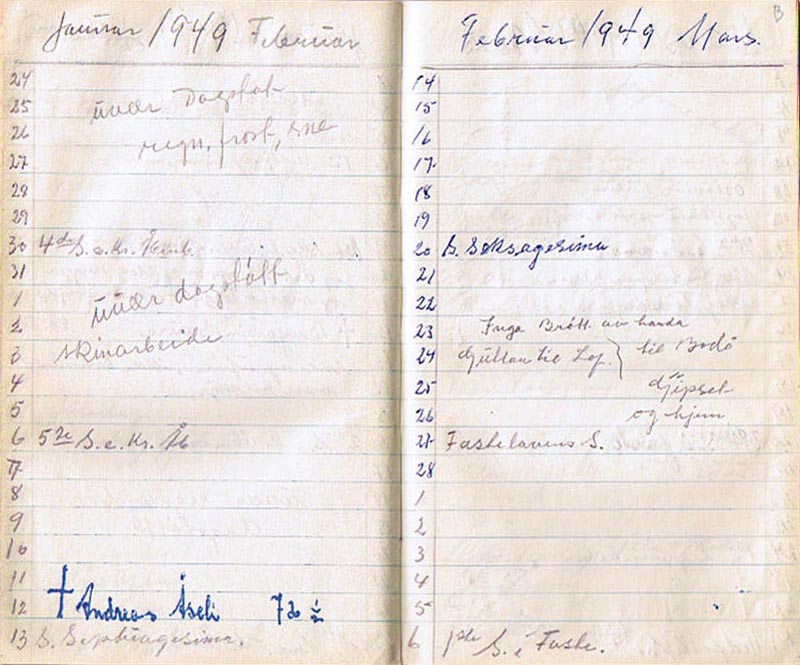 Januar 1949 Februar
24
25 uvær Dagstøt
26 regn, frost, sne
27
28
29
30 4de S. e. Kr. Åpenb.
31
1 uvær dagstøtt
2
3 skinarbeide
4
5
6 5te S. e. Kr. Åb
7
8
9
10
11
12 † Andreas Åseli 72 ½
13 S. Septuagesima.
Februar 1949 Mars.
14
15
16
17
18
19
20 S. Seksagesima
21
22
23 Inga Brått av handa
24 til Lof. } til Bodø
25 djipset
26 og hjem
27 Fastelavens S.
28
1
2
3
4
5
6 1ste S. i Faste.